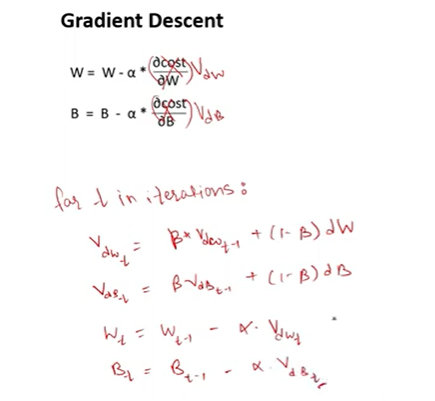 Gradient Descent
W = W - α * (∂cost/∂W) V_dW
B = B - α * (∂cost/∂B) V_dB
for t in iterations :
V_dW_t = β * V_dW_t-1 + (1 - β) dW
V_dB_t = β · V_dB_t-1 + (1 - β) dB
W_t = W_t-1 - α · V_dW_t
B_t = B_t-1 - α · V_dB_t